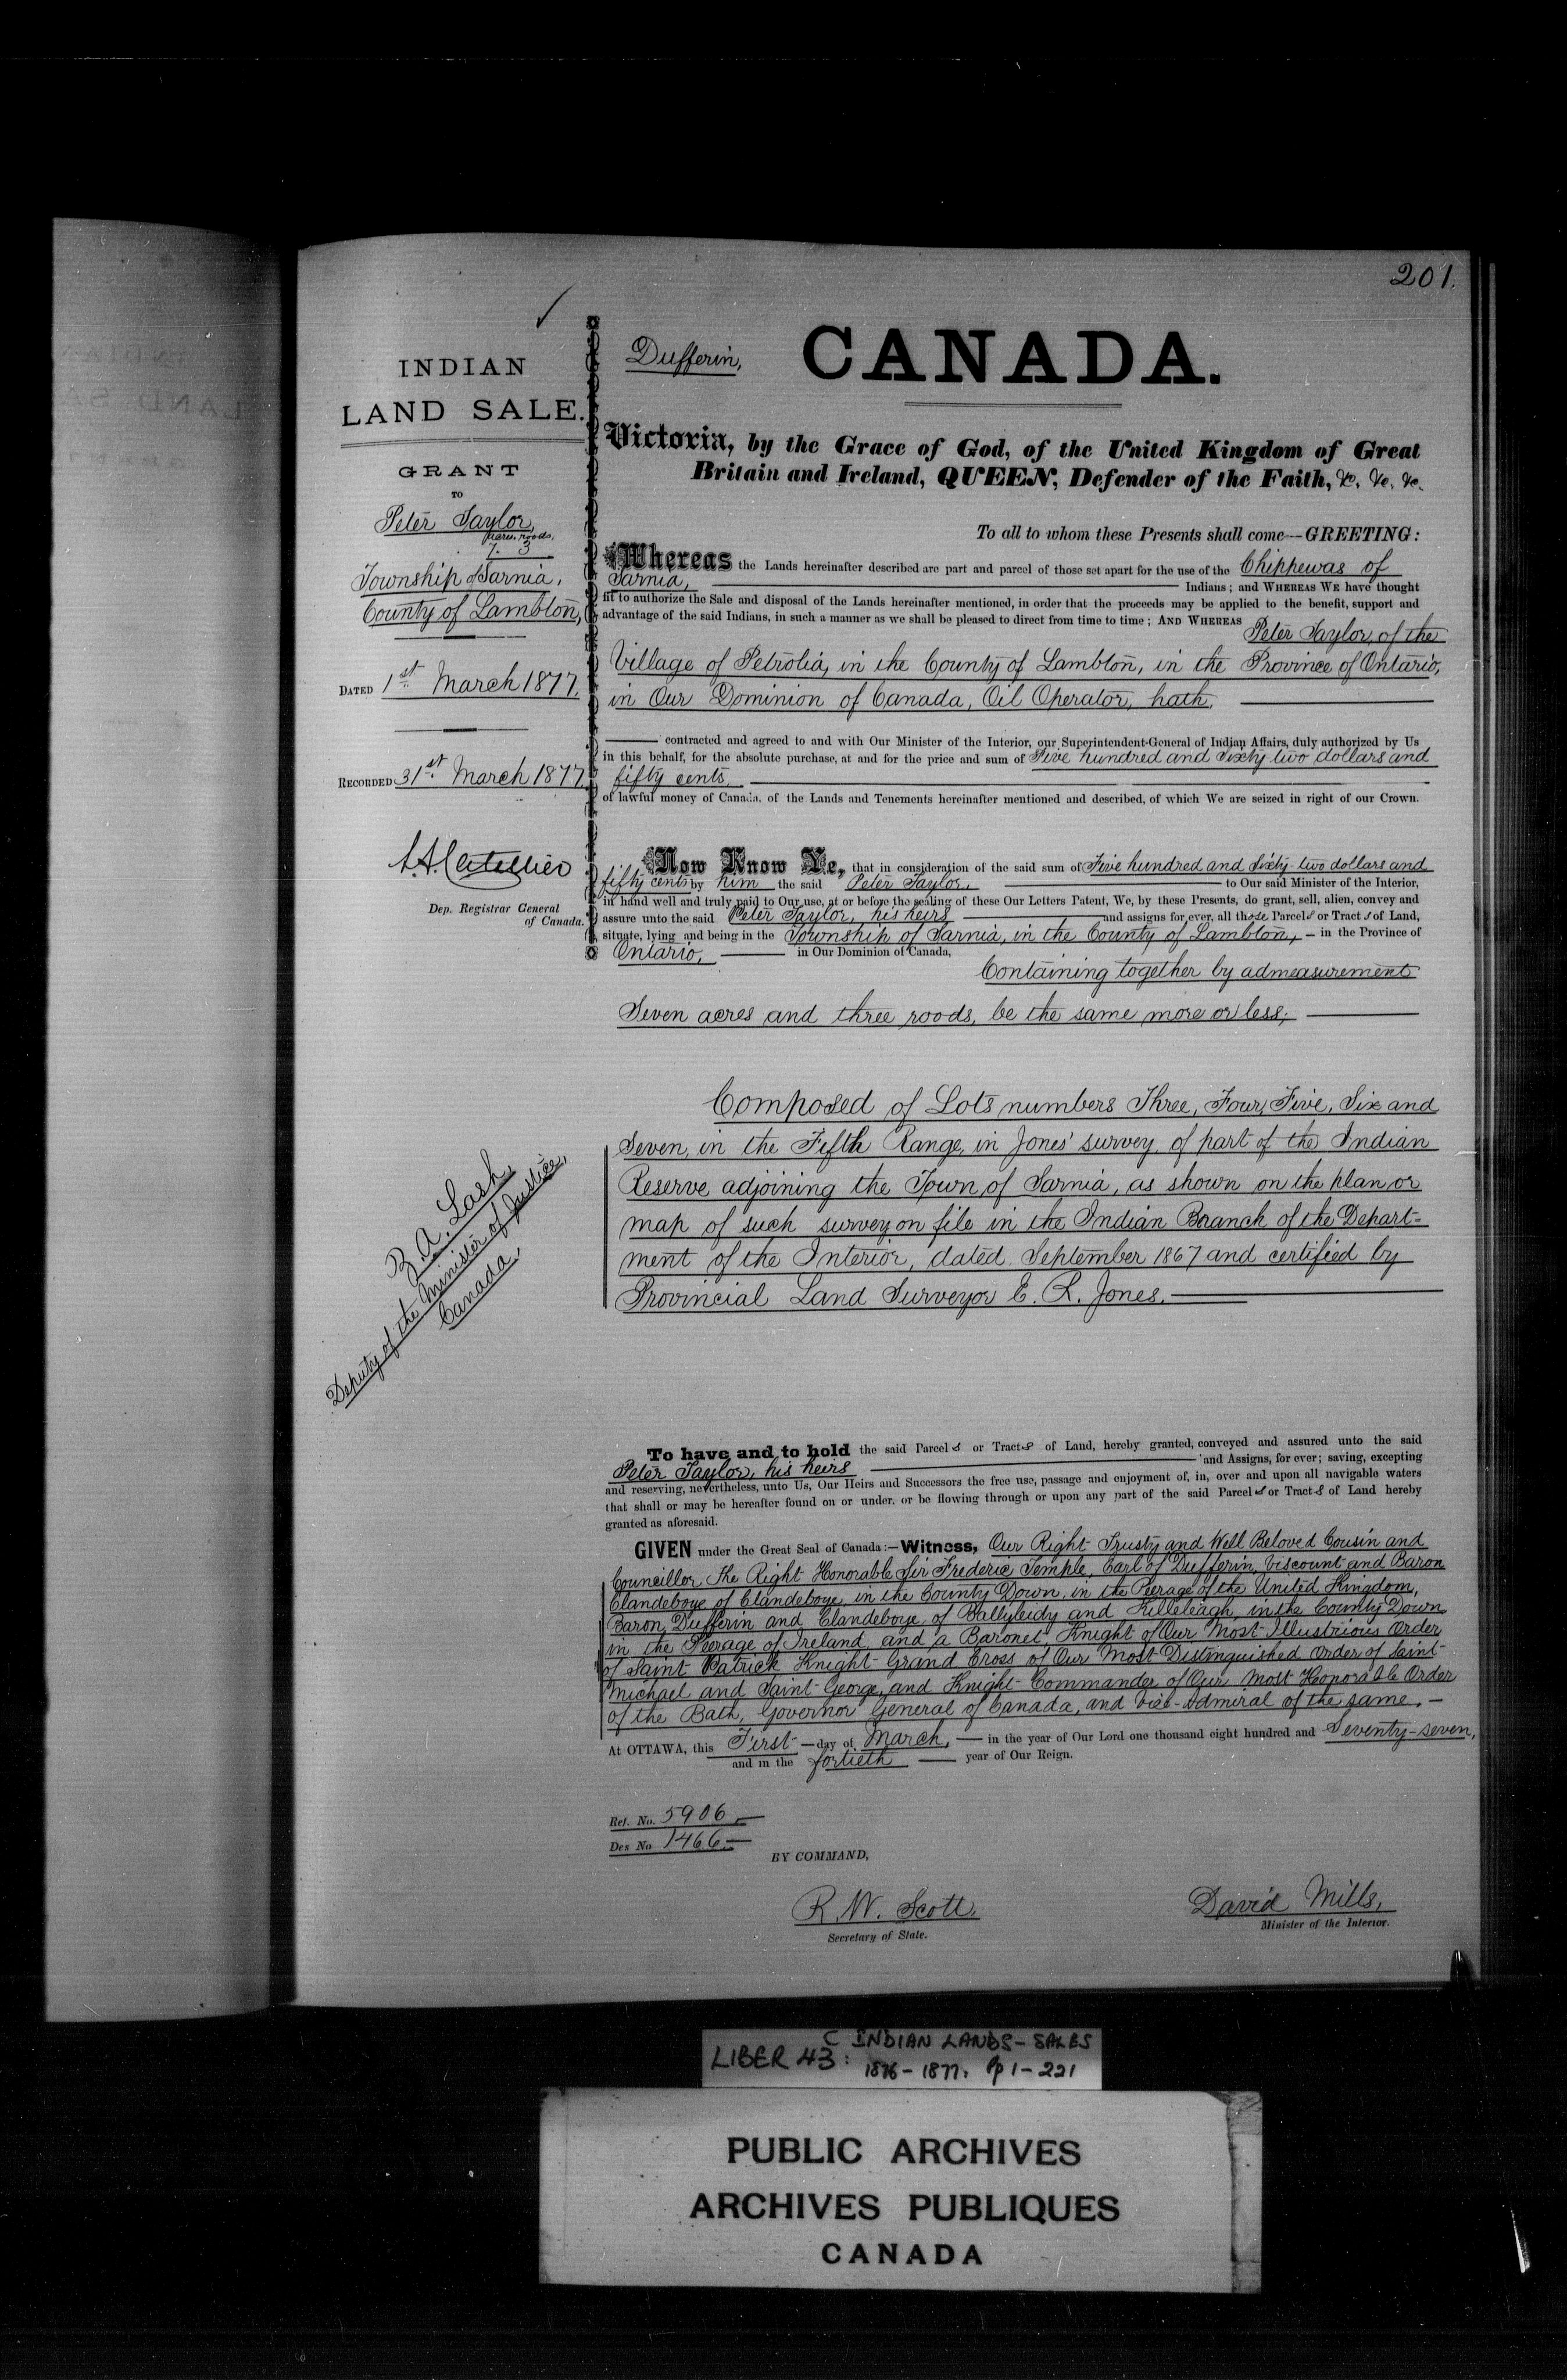 201.
INDIAN
LAND SALE.
GRANT
TO
Peter Taylor,
Acres. roods.
7. 3
Township of Sarnia,
County of Lambton,
DATED 1st March 1877.
RECORDED 31st March 1877.
Dep. Registrar General
of Canada.
Z. A. Lash,
Deputy of the Minister of Justice,
Canada.
Dufferin,
CANADA.
Victoria, by the Grace of God, of the United Kingdom of Great
Britain and Ireland, QUEEN, Defender of the Faith, &c, &c, &c.
To all to whom these Presents shall come—GREETING:
Whereas the Lands hereinafter described are part and parcel of those set apart for the use of the Chippewas of
Sarnia, Indians; and WHEREAS WE have thought
fit to authorize the Sale and disposal of the Lands hereinafter mentioned, in order that the proceeds may be applied to the benefit, support and
advantage of the said Indians, in such a manner as we shall be pleased to direct from time to time; AND WHEREAS Peter Taylor, of the
Village of Petrolia, in the County of Lambton, in the Province of Ontario,
in Our Dominion of Canada, Oil Operator, hath,
contracted and agreed to and with Our Minister of the Interior, our Superintendent-General of Indian Affairs, duly authorized by Us
in this behalf, for the absolute purchase, at and for the price and sum of Five hundred and Sixty-two dollars and
fifty cents,
of lawful money of Canada, of the Lands and Tenements hereinafter mentioned and described, of which We are seized in right of our Crown.
Now Know Ye, that in consideration of the said sum of Five hundred and Sixty-two dollars and
fifty cents by him the said Peter Taylor, to Our said Minister of the Interior,
in hand well and truly paid to Our use, at or before the sealing of these Our Letters Patent, We, by these Presents, do grant, sell, alien, convey and
assure unto the said Peter Taylor, his heirs and assigns for ever, all those Parcels or Tracts of Land,
situate, lying and being in the Township of Sarnia, in the County of Lambton, – in the Province of
Ontario, in Our Dominion of Canada,
Containing together by admeasurement
Seven acres and three roods, be the same more or less;
Composed of Lots numbers Three, Four, Five, Six and
Seven, in the Fifth Range, in Jones' survey of part of the Indian
Reserve adjoining the Town of Sarnia, as shown on the plan or
map of such survey on file in the Indian Branch of the Depart-
ment of the Interior, dated September 1867 and certified by
Provincial Land Surveyor E. R. Jones.
To have and to hold the said Parcels or Tracts of Land, hereby granted, conveyed and assured unto the said
Peter Taylor, his heirs and Assigns, for ever; saving, excepting
and reserving, nevertheless, unto Us, Our Heirs and Successors the free use, passage and enjoyment of, in, over and upon all navigable waters
that shall or may be hereafter found on or under, or be flowing through or upon any part of the said Parcels or Tracts of Land hereby
granted as aforesaid.
GIVEN under the Great Seal of Canada:—Witness, Our Right Trusty and Well Beloved Cousin and
Councillor The Right Honorable Sir Frederic Temple, Earl of Dufferin, Viscount and Baron
Clandeboye of Clandeboye, in the County Down, in the Peerage of the United Kingdom,
Baron Dufferin and Clandeboye of Ballyleidy and Killeleagh, in the County Down
in the Peerage of Ireland, and a Baronet, Knight of Our Most Illustrious Order
of Saint Patrick Knight Grand Cross of Our Most Distinguished Order of Saint
Michael and Saint George, and Knight Commander of Our Most Honorable Order
of the Bath, Governor General of Canada, and Vice-Admiral of the same. –
At OTTAWA, this First – day of March, – in the year of Our Lord one thousand eight hundred and Seventy-seven,
and in the fortieth year of Our Reign.
Ref. No. 5906
Des No 1466
BY COMMAND,
R. W. Scott.
Secretary of State.
David Mills,
Minister of the Interior.
LIBER 43: C INDIAN LANDS-SALES
1876-1877. Pp 1-221
PUBLIC ARCHIVES
ARCHIVES PUBLIQUES
CANADA